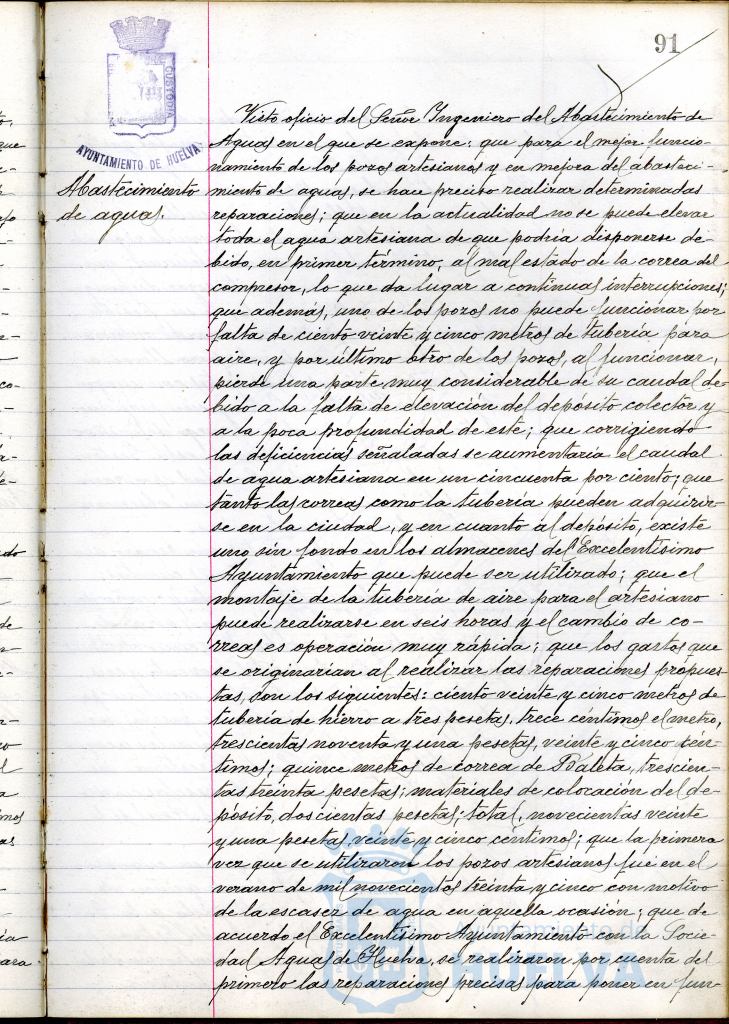 91
CUSTODIA
AYUNTAMIENTO DE HUELVA
Abastecimiento
de aguas.
Visto oficio del Señor Ingeniero del Abastecimiento de
Aguas en el que se expone: que para el mejor funcio-
namiento de los pozos artesianos y en mejora del abasteci-
miento de aguas, se hace preciso realizar determinadas
reparaciones; que en la actualidad no se puede elevar
toda el agua artesiana de que podría disponerse de-
bido, en primer término, al mal estado de la correa del
compresor, lo que da lugar a continuas interrupciones;
que además, uno de los pozos no puede funcionar por
falta de ciento veinte y cinco metros de tubería para
aire, y por último otro de los pozos, al funcionar,
pierde una parte muy considerable de su caudal de-
bido a la falta de elevación del depósito colector y
a la poca profundidad de este; que corrigiendo
las deficiencias señaladas se aumentaría el caudal
de agua artesiana en un cincuenta por ciento; que
tanto las correas como la tubería pueden adquirir-
se en la ciudad, y en cuanto al depósito, existe
uno sin fondo en los almacenes del Excelentísimo
Ayuntamiento que puede ser utilizado; que el
montaje de la tubería de aire para el artesiano
puede realizarse en seis horas y el cambio de co-
rreas es operación muy rápida; que los gastos que
se originarían al realizar las reparaciones propues-
tas, son los siguientes: ciento veinte y cinco metros de
tubería de hierro a tres pesetas, trece céntimos el metro,
trescientas noventa y una pesetas, veinte y cinco cén-
timos; quince metros de correa de Balata, trescien-
tas treinta pesetas; materiales de colocación del de-
pósito, doscientas pesetas; total, novecientas veinte
y una pesetas veinte y cinco céntimos; que la primera
vez que se utilizaron los pozos artesianos fué en el
verano de mil novecientos treinta y cinco con motivo
de la escasez de agua en aquella ocasión; que de
acuerdo el Excelentísimo Ayuntamiento con la Socie-
dad Aguas de Huelva, se realizaron por cuenta del
primero las reparaciones precisas para poner en fun-
Ayuntamiento de
HUELVA